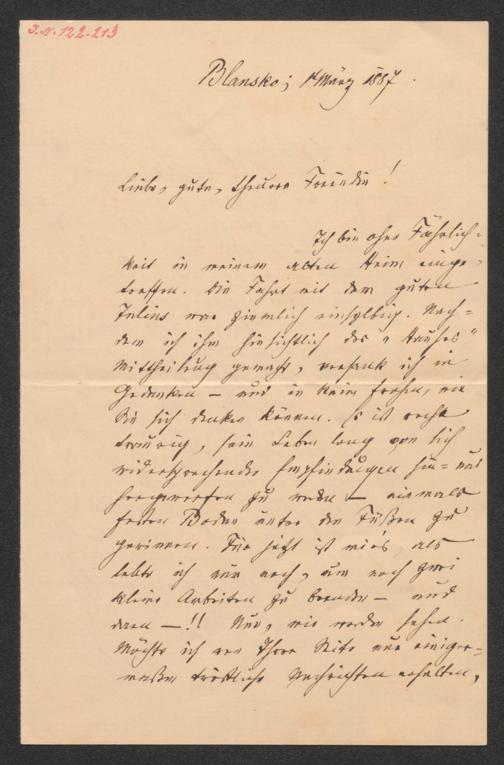 J.N. 122.213
Blansko; 14 März 1887.
Liebe, gute, theuere Freundin!
Ich bin ohne Fährlich-
keit in meinem alten Heim einge-
troffen. Die Fahrt mit dem guten
Julius war ziemlich einsylbig. Nach-
dem ich ihm hinsichtlich des „Hauses"
Mittheilung gemacht, versank ich in
Gedanken – und in keine frohen, wie
Sie sich denken können. Es ist recht
traurig, sein Leben lang von sich
widersprechenden Empfindungen hin- und
hergeworfen zu werden – niemals
festen Boden unter den Füßen zu
gewinnen. Für jetzt ist mir's, als
lebte ich nur noch, um noch zwei
kleine Arbeiten zu beenden – und
dann –!! Nun, wir werden sehen.
Möchte ich von Ihrer Seite nur einiger-
maßen tröstliche Nachrichten erhalten,